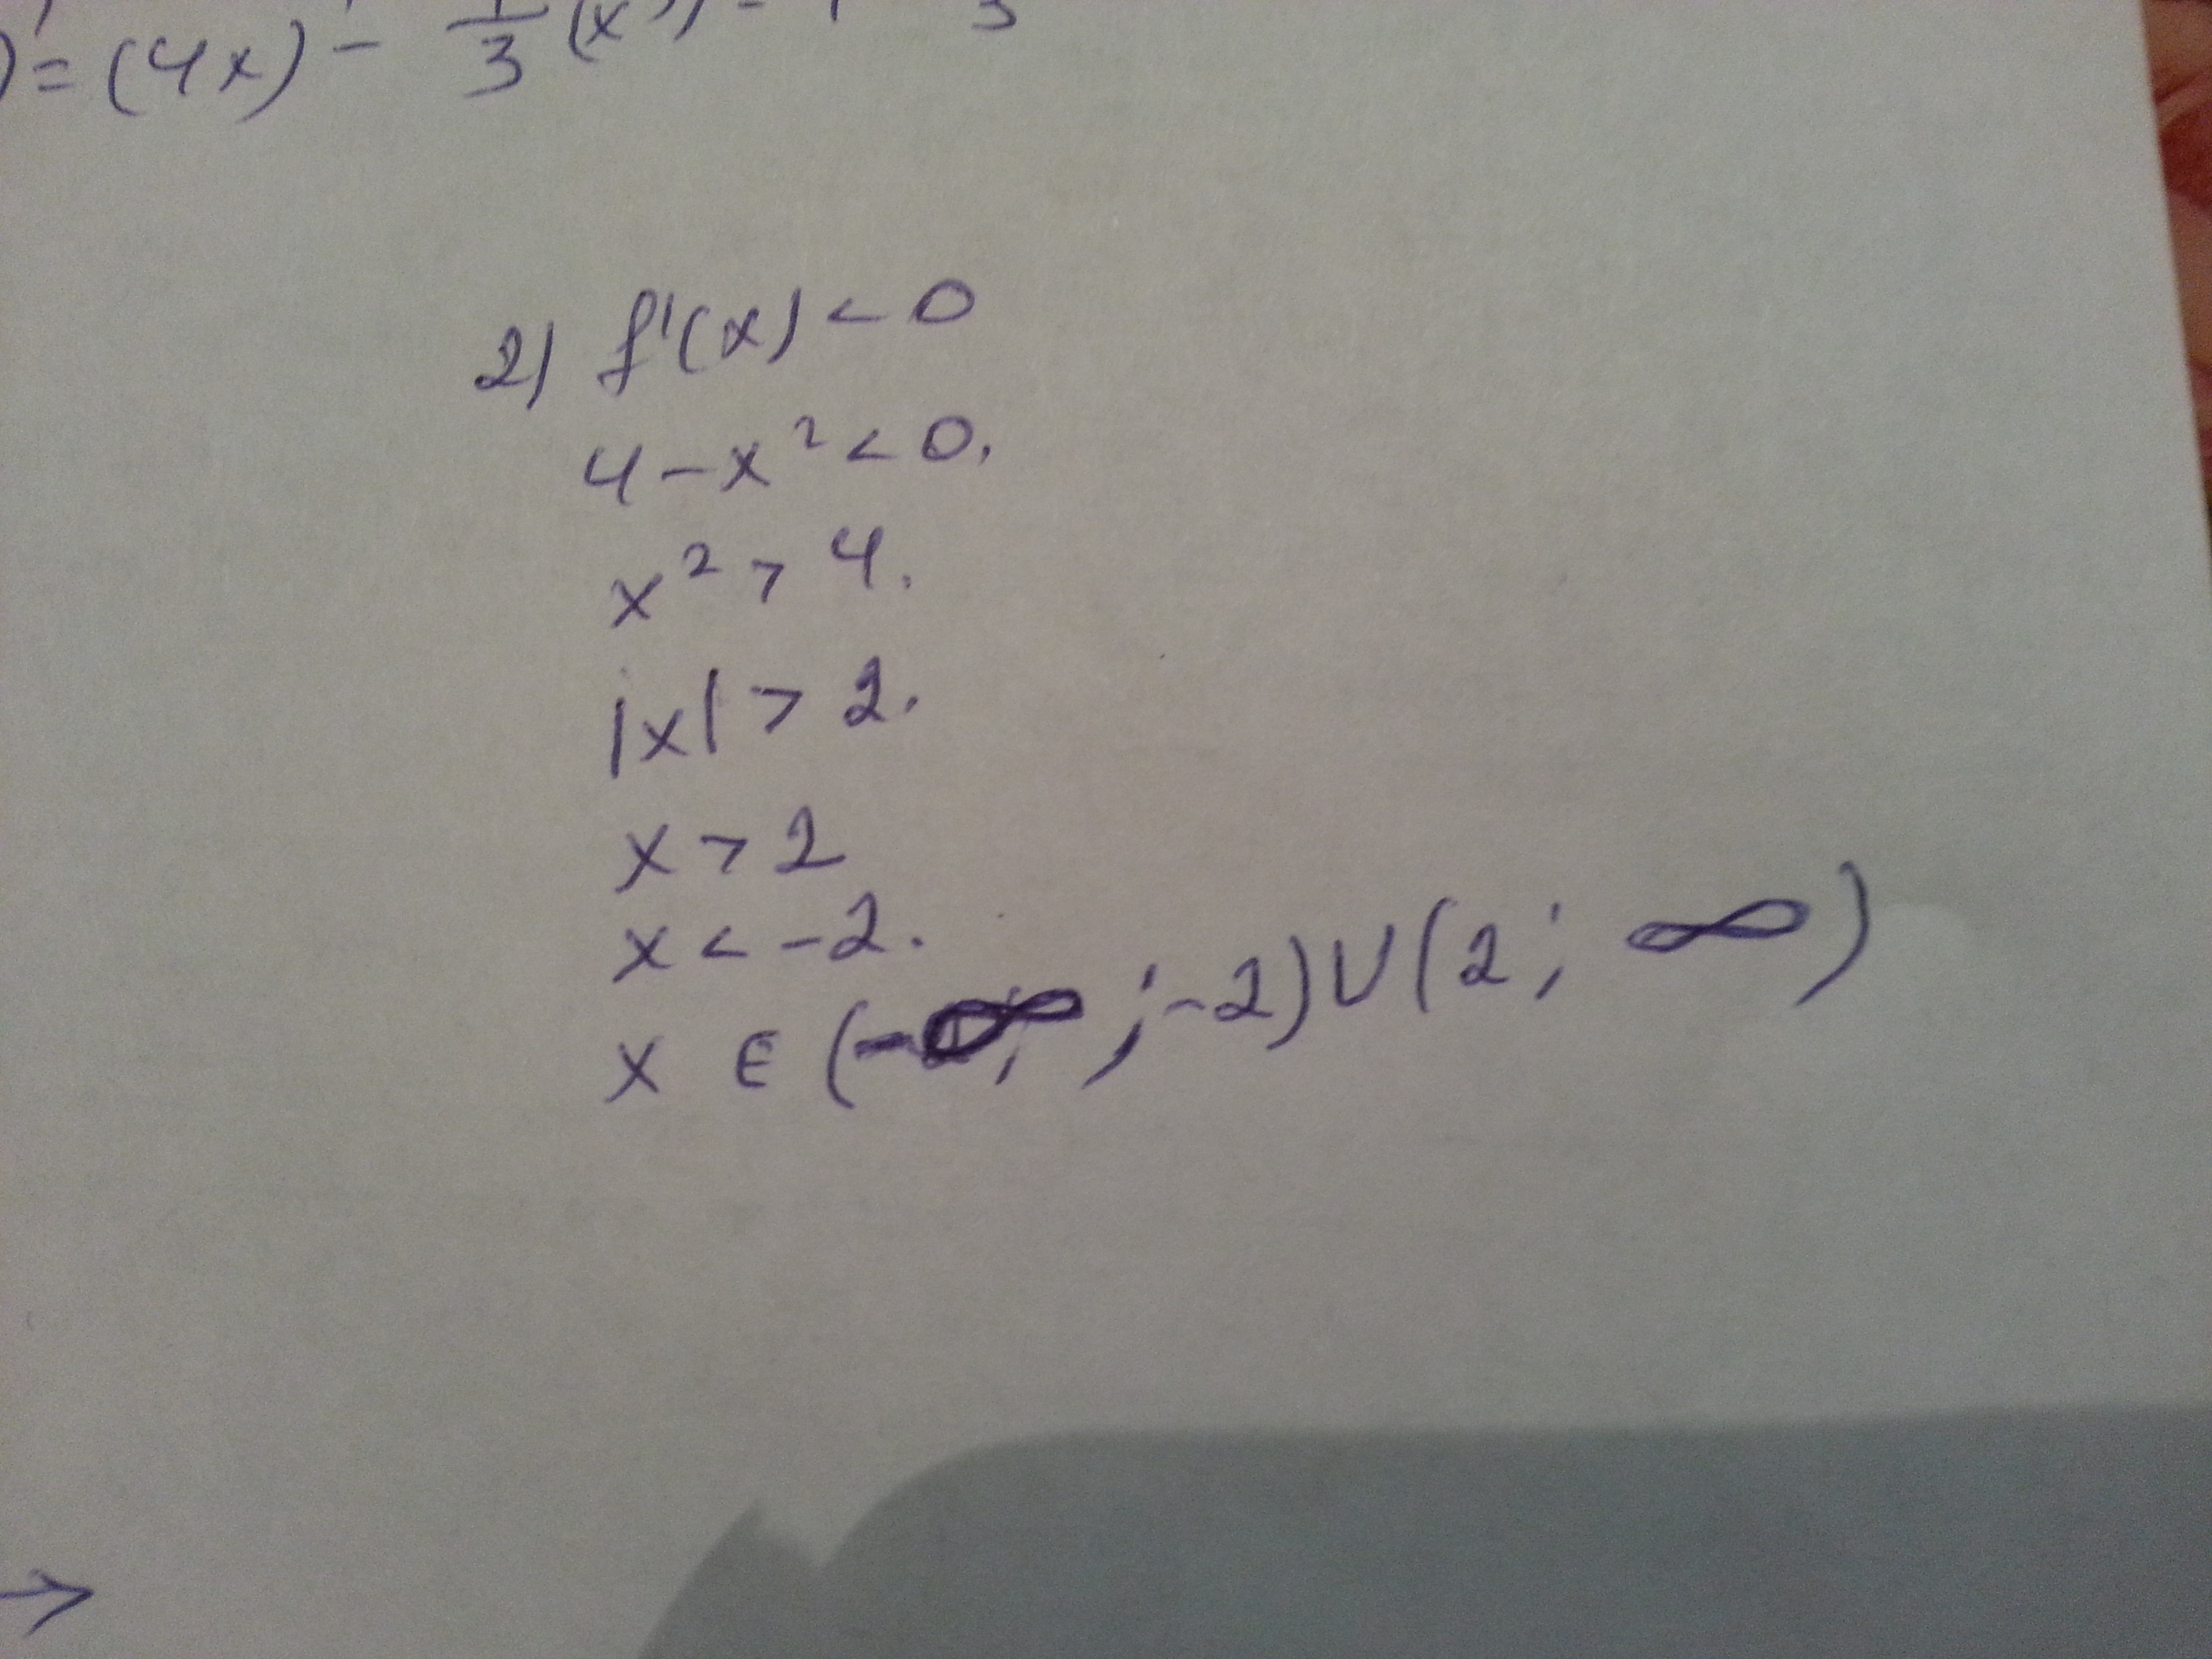 )'=(4x)'- 1/3 (x
2) f'(x)<0
4-x²<0.
x²>4.
|x|>2.
x>2
x<-2.
x ∈ (-∞;-2)U(2;∞)
→